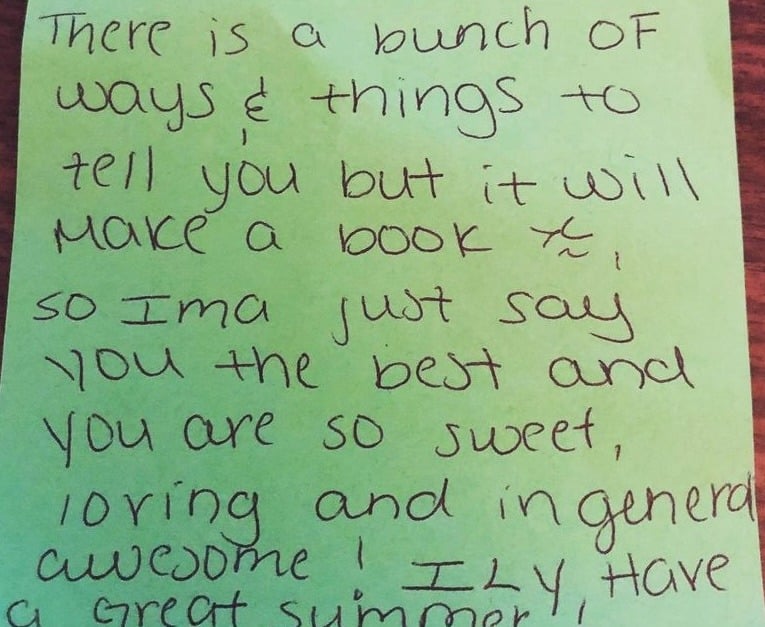 There is a bunch of
ways & things to
tell you but it will
Make a book
so Ima just say
you the best and
you are so sweet,
loving and in general
awesome! ILY, Have
a Great summer!,